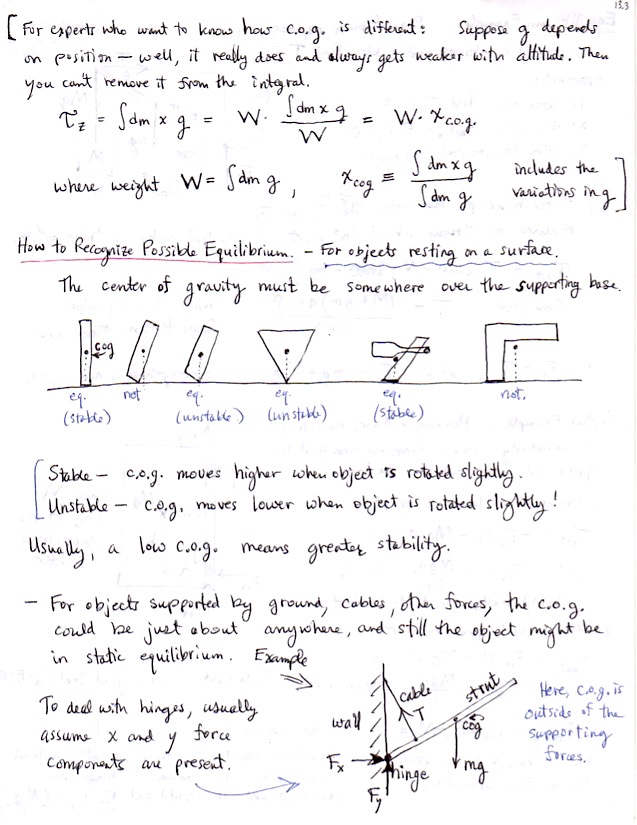 13.3
[ For experts who want to know how c.o.g. is different: Suppose g depends
on position — well, it really does and always gets weaker with altitude. Then
you can't remove it from the integral.
τz = ∫dm x g = W · ∫dm x g / W = W · x c.o.g.
where weight W = ∫dm g , xcog ≡ ∫dm x g / ∫dm g includes the variations in g ]
How to Recognize Possible Equilibrium. – For objects resting on a surface.
The center of gravity must be somewhere over the supporting base.
cog
eq. (stable) not eq. (unstable) eq. (unstable) eq. (stable) not.
[ Stable — c.o.g. moves higher when object is rotated slightly.
Unstable — c.o.g. moves lower when object is rotated slightly!
Usually, a low c.o.g. means greater stability.
– For objects supported by ground, cables, other forces, the c.o.g.
could be just about anywhere, and still the object might be
in static equilibrium. Example
To deal with hinges, usually
assume x and y force
components are present.
wall
cable
T
strut
cog
mg
hinge
Fx
Fy
Here, c.o.g. is
outside of the
supporting
forces.